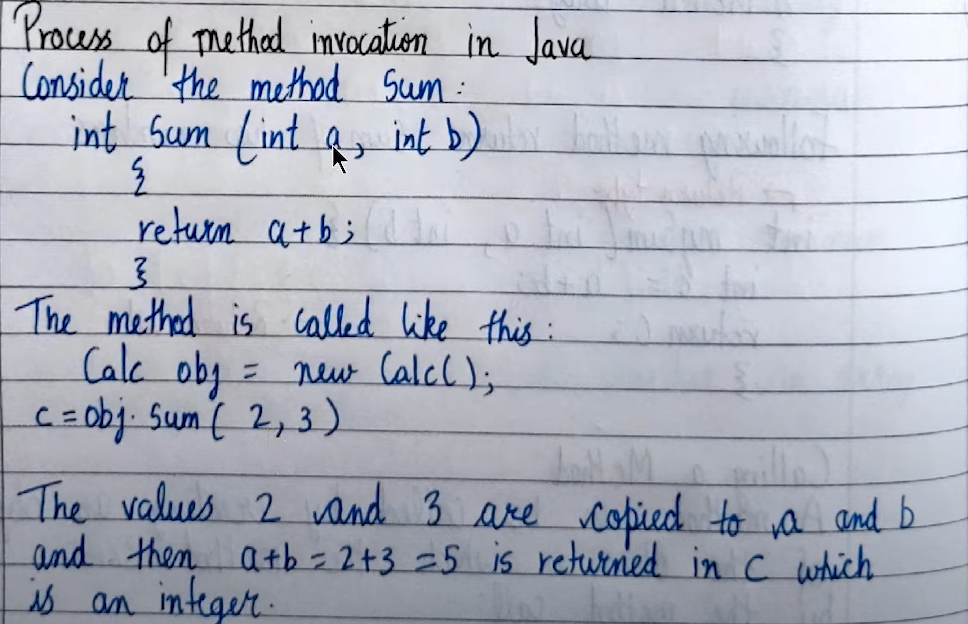 Process of method invocation in Java
Consider the method Sum:
int Sum (int a, int b)
{
return a+b;
}
The method is called like this:
Calc obj = new Calc();
c = obj. Sum ( 2, 3 )
The values 2 and 3 are copied to a and b
and then a+b = 2+3 = 5 is returned in c which
is an integer.